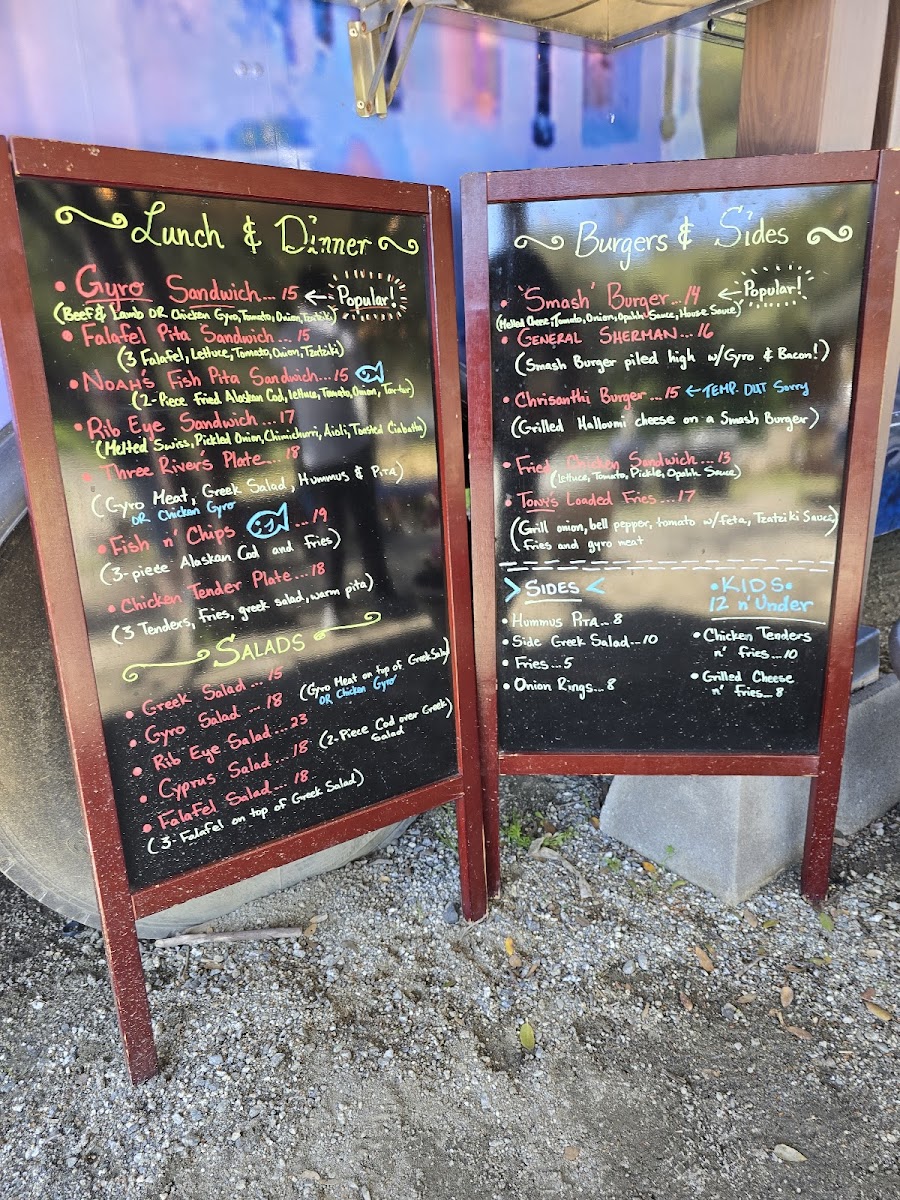 Lunch & Dinner
• Gyro Sandwich... 15 ← Popular!
(Beef & Lamb OR Chicken Gyro, Tomato, Onion, Tzatziki)
• Falafel Pita Sandwich... 15
(3 Falafel, Lettuce, Tomato, Onion, Tzatziki)
• NOAH'S Fish Pita Sandwich...15
(2-Piece Fried Alaskan Cod, lettuce, Tomato, Onion, Tartar)
• Rib Eye Sandwich...17
(Melted Swiss, Pickled Onion, Chimichurri, Aioli, Toasted Ciabatta)
• Three River's Plate...18
(Gyro Meat, Greek Salad, Hummus & Pita)
OR Chicken Gyro
• Fish n' Chips ...19
(3-piece Alaskan Cod and fries)
• Chicken Tender Plate...18
(3 Tenders, Fries, greek salad, warm pita)
SALADS
• Greek Salad... 15
• Gyro Salad ... 18 (Gyro Meat on top of Greek Salad)
OR Chicken Gyro
• Rib Eye Salad...23
• Cyprus Salad... 18 (2-Piece Cod over Greek Salad)
• Falafel Salad... 18
(3-Falafel on top of Greek Salad)
Burgers & Sides
• 'Smash' Burger...14 ← Popular!
(Melted Cheese, Tomato, Onion, Opahh Sauce, House Sauce)
• GENERAL SHERMAN... 16
(Smash Burger piled high w/Gyro & Bacon!)
• Chrisanthi Burger...15 ← TEMP. OUT Sorry
(Grilled Halloumi cheese on a Smash Burger)
• Fried Chicken Sandwich...13
(lettuce, Tomato, Pickle, Opahh Sauce)
• TONYS Loaded Fries...17
(Grill onion, bell pepper, tomato w/feta, Tzatziki Sauce,
fries and gyro meat
> SIDES <
• Hummus PITA...8
• Side Greek Salad...10
• Fries...5
• Onion Rings...8
• KIDS •
12 n' Under
• Chicken Tenders
n' fries...10
• Grilled Cheese
n' fries...8